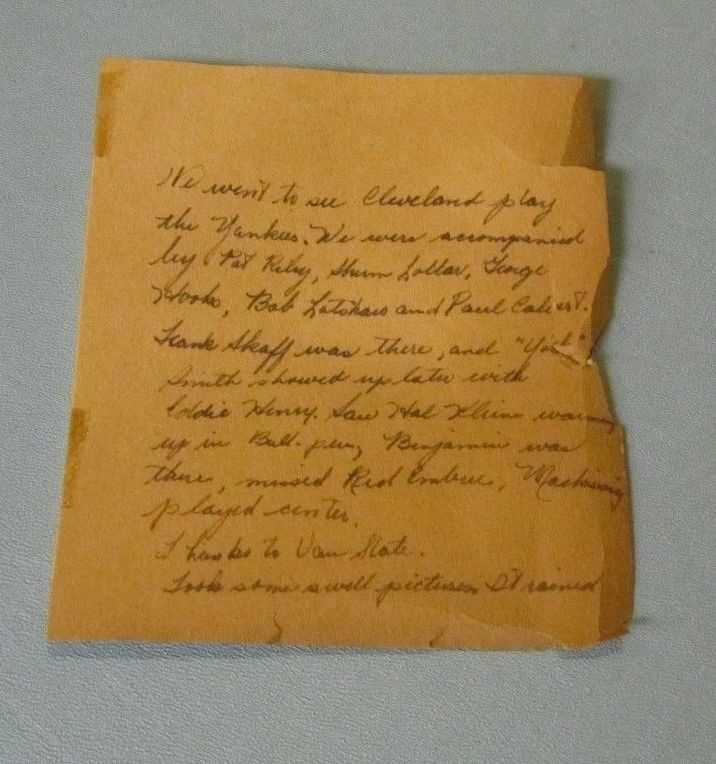 We went to see Cleveland play
the Yankees. We were accompanied
by Pat Riley, Sherm Lollar, George
Hooks, Bob Latshaw and Paul Calvert.
Frank Skaff was there, and "York"
Smith showed up later with
Eddie Henry. Saw Hal Kleine warming
up in Bull-pen, Benjamin was
there, missed Red Embree, Mackiewicz
played center.
Thanks to Van Slate.
Took some swell pictures. It rained